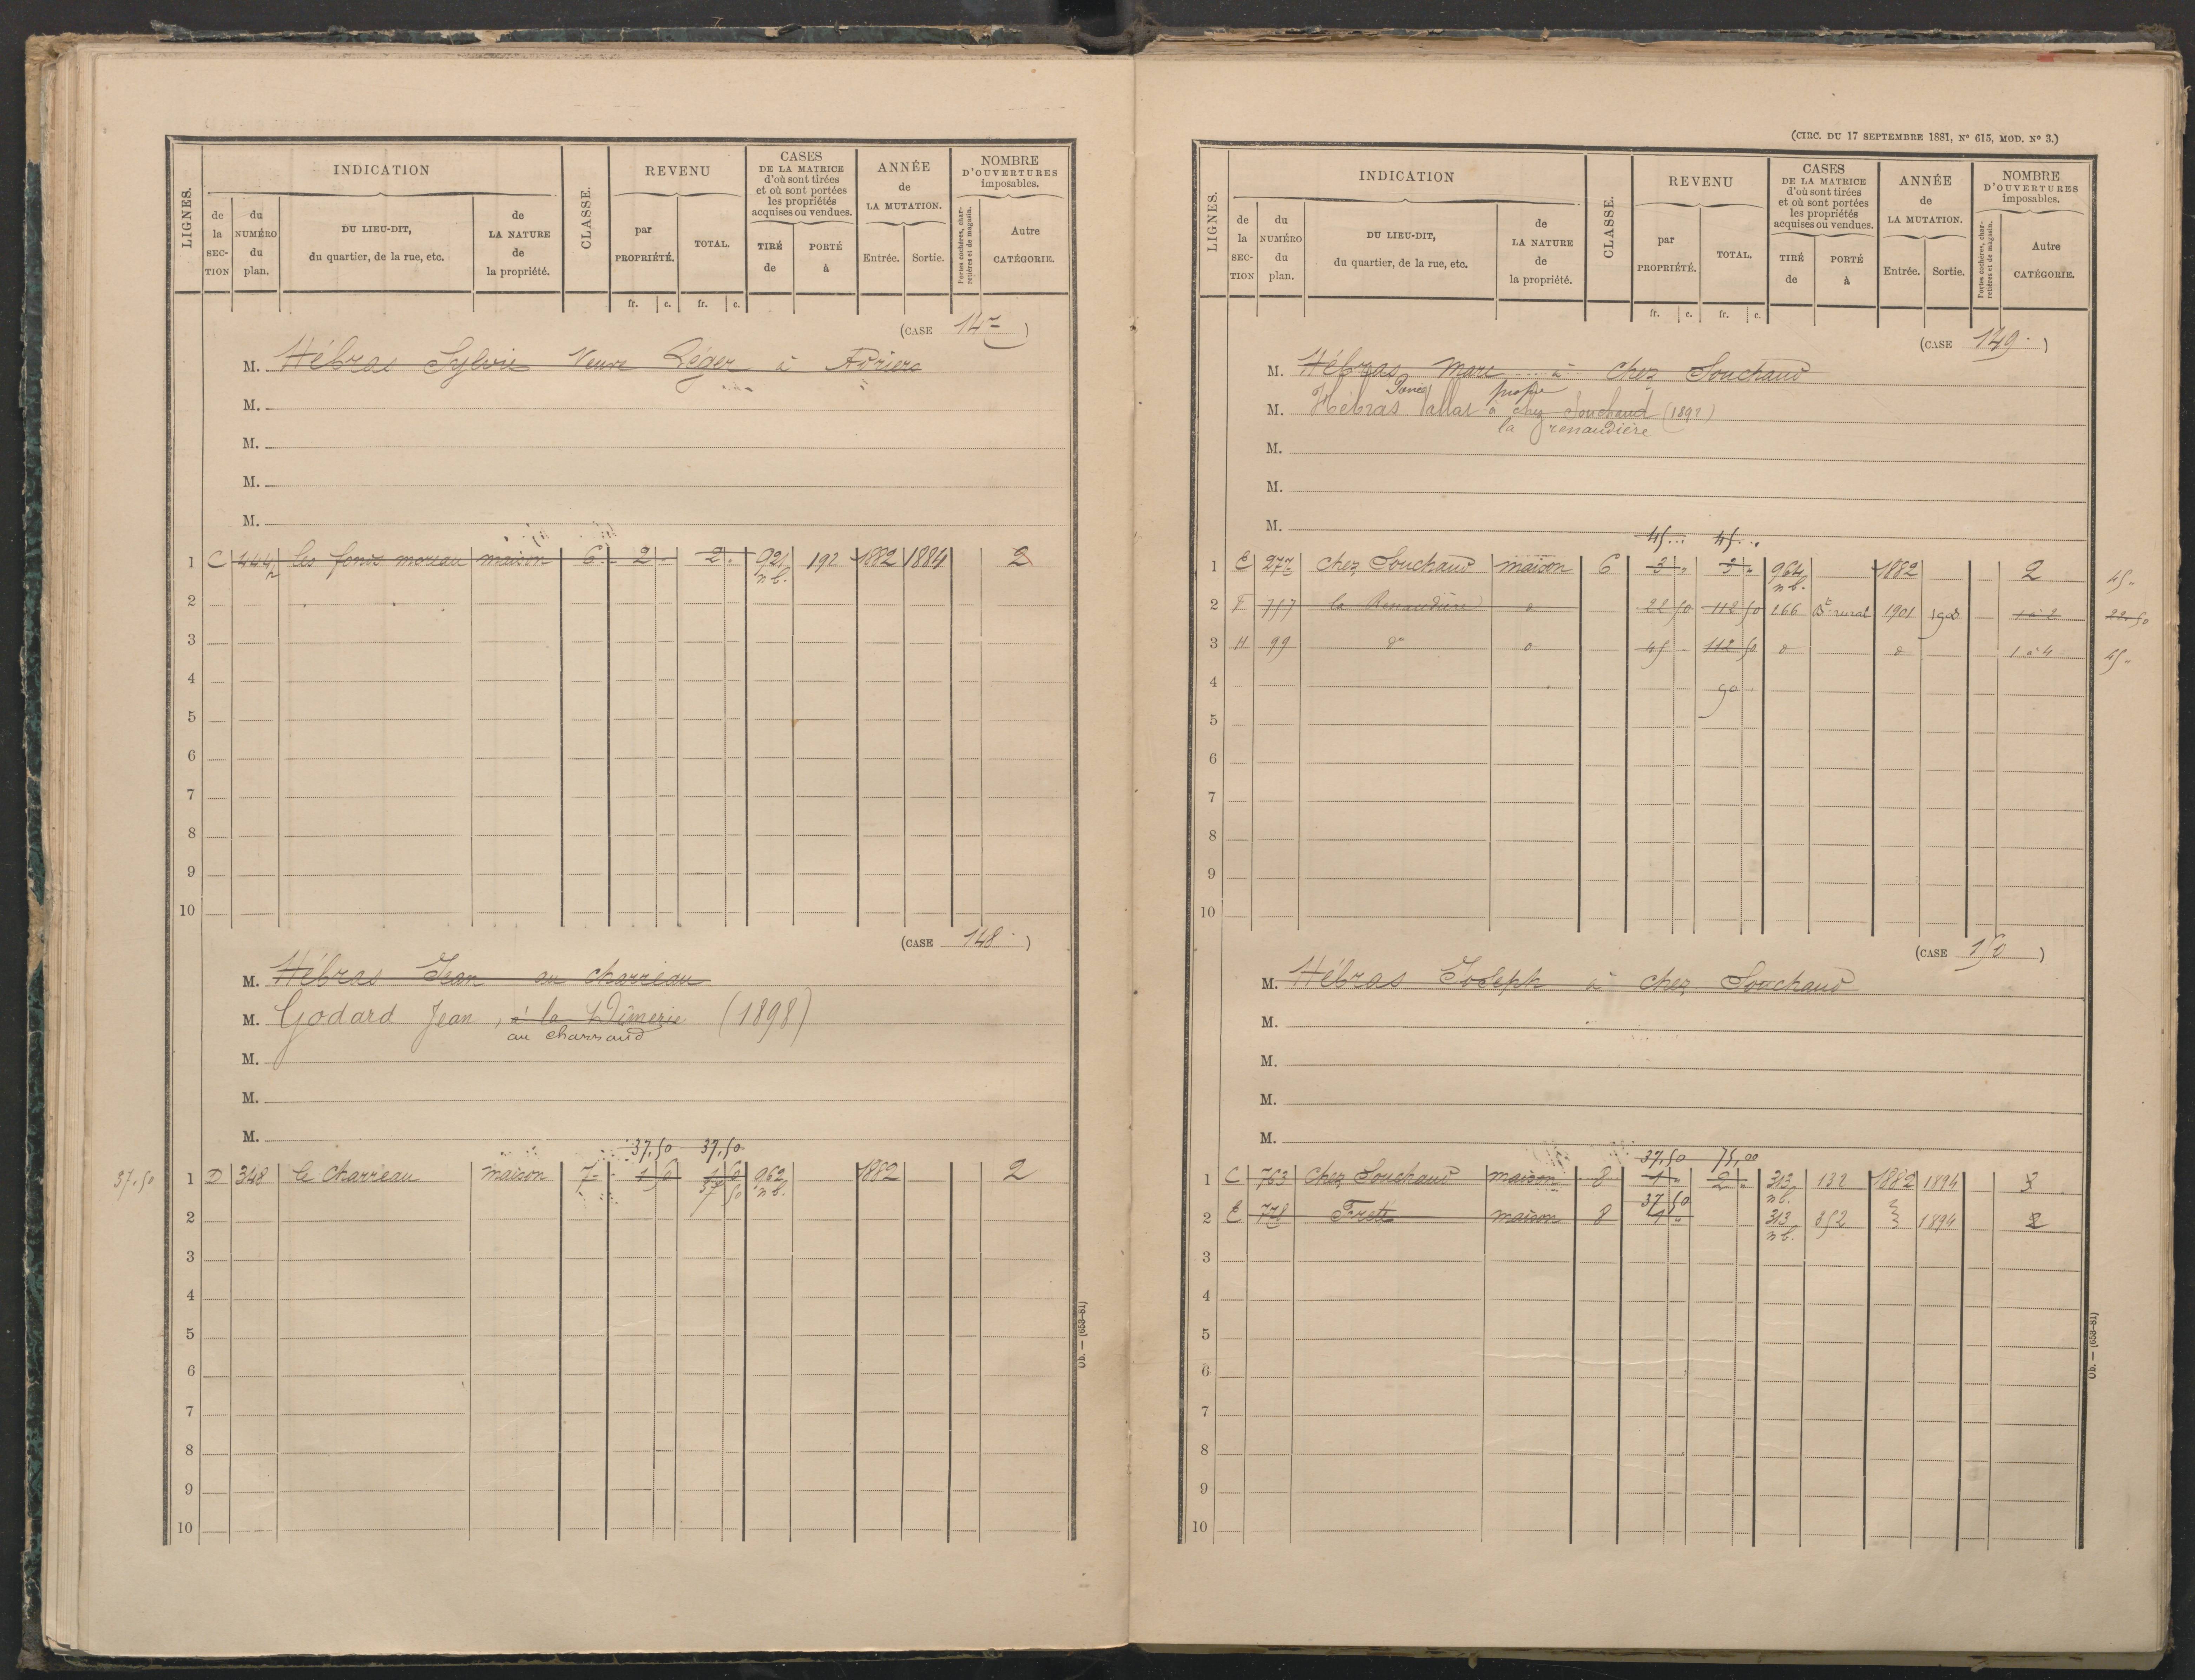 LIGNES.
INDICATION
de la SECTION
du NUMÉRO du plan.
DU LIEU-DIT, du quartier, de la rue, etc.
de LA NATURE de la propriété.
CLASSE.
REVENU
par PROPRIÉTÉ.
TOTAL.
fr. c. fr. c.
CASES DE LA MATRICE d'où sont tirées et où sont portées les propriétés acquises ou vendues.
TIRÉ de
PORTÉ à
ANNÉE de LA MUTATION.
Entrée.
Sortie.
NOMBRE D'OUVERTURES imposables.
Portes cochères, charretières et de magasin.
Autre CATÉGORIE.
(CASE 147)
M. Hébras Sylvie Veuve Léger à Adriers
M.
M.
M.
M.
1 C 444 les fonds moreau maison 6 2 2 921 n b. 192 1882 1884 2
2
3
4
5
6
7
8
9
10
(CASE 148)
M. Hébras Jean au charreau
M. Godard Jean, à la Dîmerie (1898)
au charraud
M.
M.
M.
37,50 37,50
37,50 1 D 348 le charreau maison 7 1 50 1 50 962 n b. 1882 2
37 50
2
3
4
5
6
7
8
9
10
Ob. — (653-81)
(CIRC. DU 17 SEPTEMBRE 1881, N° 615, MOD. N° 3.)
LIGNES.
INDICATION
de la SECTION
du NUMÉRO du plan.
DU LIEU-DIT, du quartier, de la rue, etc.
de LA NATURE de la propriété.
CLASSE.
REVENU
par PROPRIÉTÉ.
TOTAL.
fr. c. fr. c.
CASES DE LA MATRICE d'où sont tirées et où sont portées les propriétés acquises ou vendues.
TIRÉ de
PORTÉ à
ANNÉE de LA MUTATION.
Entrée.
Sortie.
NOMBRE D'OUVERTURES imposables.
Portes cochères, charretières et de magasin.
Autre CATÉGORIE.
(CASE 149)
M. Hébras Marc à Chez Souchaud
M. Hébras Vallat à chez Souchaud (1892)
la Renaudière
M.
M.
M.
45 45
1 E 277 chez Souchaud maison 6 3 " 3 " 964 n b. 1882 2 45 "
2 F 757 la Renaudière d 22 50 112 50 266 Bt rural 1901 1908 1 à 2 22.50
3 H 99 do d 45 112 50 d d 1 à 4 45 "
4 90
5
6
7
8
9
10
(CASE 150)
M. Hébras Joseph à chez Souchaud
M.
M.
M.
M.
37,50 75,00
1 C 763 chez Souchaud maison 8 1 " 2 " 313 n b. 132 1882 1894 3
37 50
2 E 778 maison 8 1 " 313 n b. 852 1894 2
3
4
5
6
7
8
9
10
Ob. — (653-81)